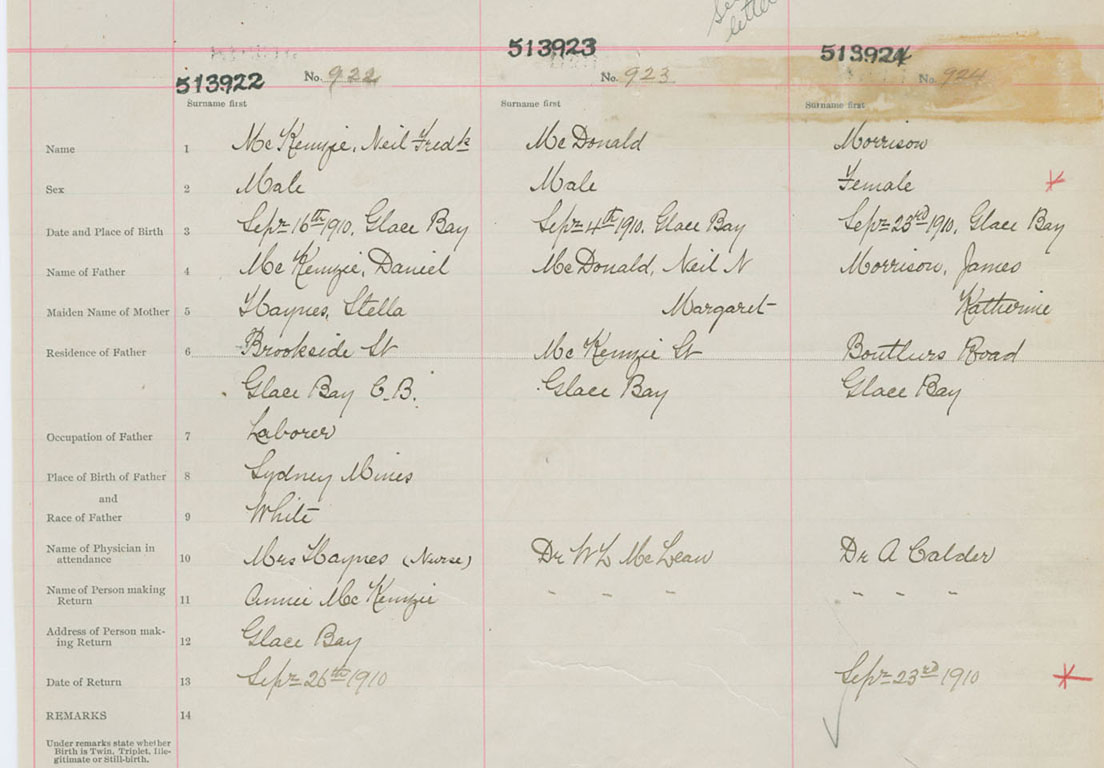 see
letter
513922 No. 922
513923 No. 923
513924 No. 924
Surname first Surname first Surname first
Name 1 Mc Kenzie, Neil Fredk McDonald Morrison
Sex 2 Male Male Female
Date and Place of Birth 3 Sepr 16th 1910, Glace Bay Sepr 4th 1910, Glace Bay Sepr 23rd 1910, Glace Bay
Name of Father 4 Mc Kenzie, Daniel McDonald, Neil N Morrison, James
Maiden Name of Mother 5 Haynes, Stella Margaret Katherine
Residence of Father 6 Brookside St Mc Kenzie St Boutliers Road
Glace Bay C.B. Glace Bay Glace Bay
Occupation of Father 7 Laborer
Place of Birth of Father 8 Sydney Mines
and
Race of Father 9 White
Name of Physician in
attendance 10 Mrs Haynes (Nurse) Dr W L McLean Dr A Calder
Name of Person making
Return 11 Annie Mc Kenzie " " " " " "
Address of Person mak-
ing Return 12 Glace Bay
Date of Return 13 Sepr 26th 1910 Sepr 23rd 1910
REMARKS 14
Under remarks state whether
Birth is Twin, Triplet, Ille-
gitimate or Still-birth.